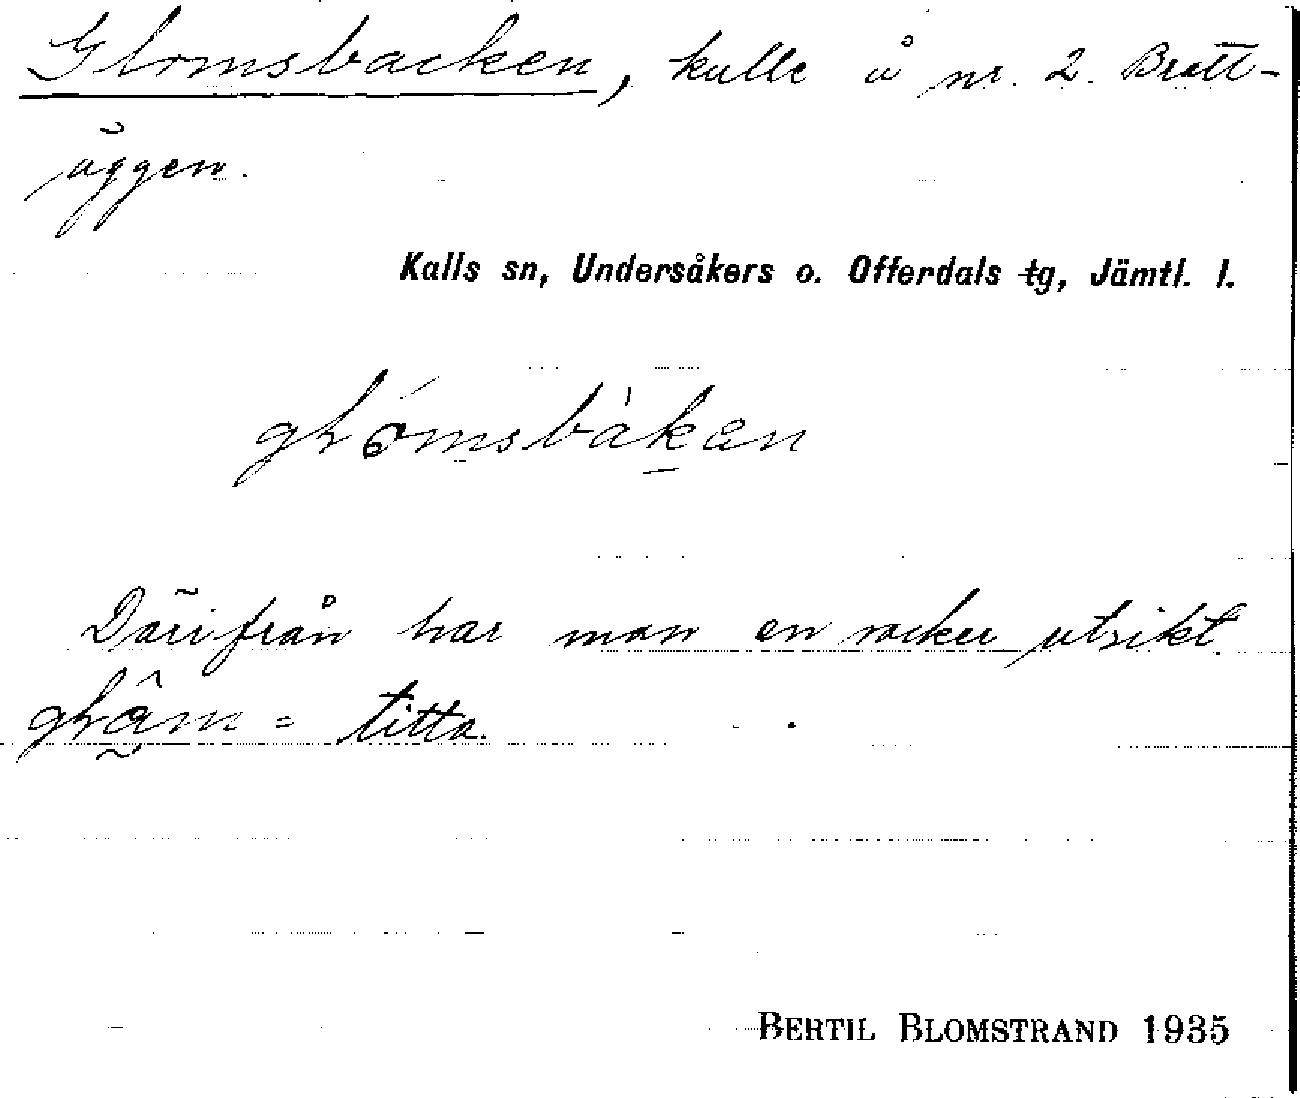 Glomsbacken, kulle å nr. 2. Bratt-
åggen.
Kalls sn, Undersåkers o. Offerdals tg, Jämtl. l.
glómsbàkan
Därifrån har man en vacker utsikt.
glâm = titta.
BERTIL BLOMSTRAND 1935